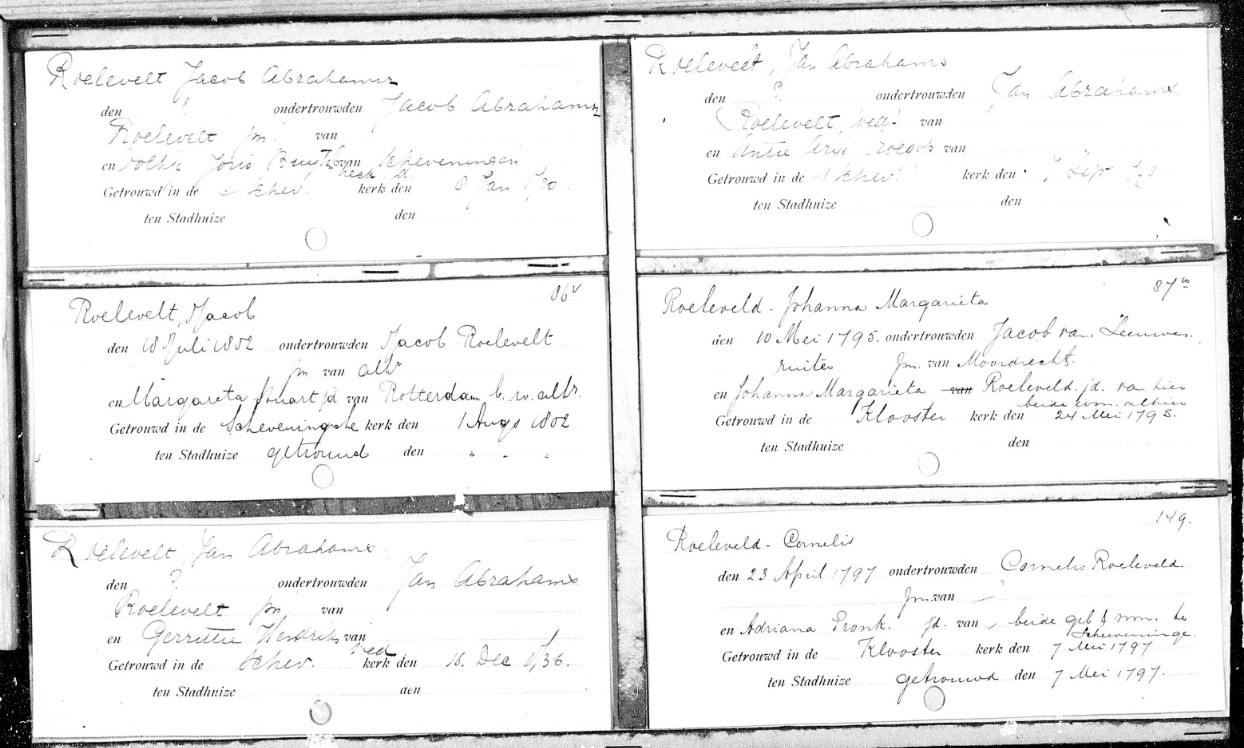 Roelevelt Jacob Abrahamsz
den ? ondertrouwden Jacob Abrahamsz
Roelevelt jm. van
en Joris van Scheveningen
Getrouwd in de Schev. kerk den 8 Jan
ten Stadhuize den
86v
Roelevelt, Jacob
den 18 Juli 1802 ondertrouwden Jacob Roelevelt
jm van alh
en Margareta jd van Rotterdam b. w. alh.
Getrouwd in de Scheveningsche kerk den 1 Augs 1802
ten Stadhuize getrouwd den " " "
Roelevelt, Jan Abrahams
den ? ondertrouwden Jan Abrahams
Roelevelt jm. van
en Gerritie Hendriks van
wed
Getrouwd in de Schev. kerk den 16. Dec 1736.
ten Stadhuize den
Roelevelt, Jan Abrahams
den ? ondertrouwden Jan Abrahams
Roelevelt, wedr van
en Antie Arys van
Getrouwd in de Schev. kerk den 7 Sep
ten Stadhuize den
87
Roeleveld - Johanna Margarieta
den 10 Mei 1795. ondertrouwden Jacob van Leeuwen.
ruiter jm. van Moordrecht.
en Johanna Margarieta van Roeleveld. jd. van hier
beide won. alhier
Getrouwd in de Klooster kerk den 24 Mei 1795.
ten Stadhuize den
149.
Roeleveld - Cornelis
den 23 April 1797 ondertrouwden Cornelis Roeleveld.
jm. van –
en Adriana Pronk. jd. van – beide geb & won. te
Scheveninge.
Getrouwd in de Klooster kerk den 7 Mei 1797
ten Stadhuize getrouwd den 7 Mei 1797.